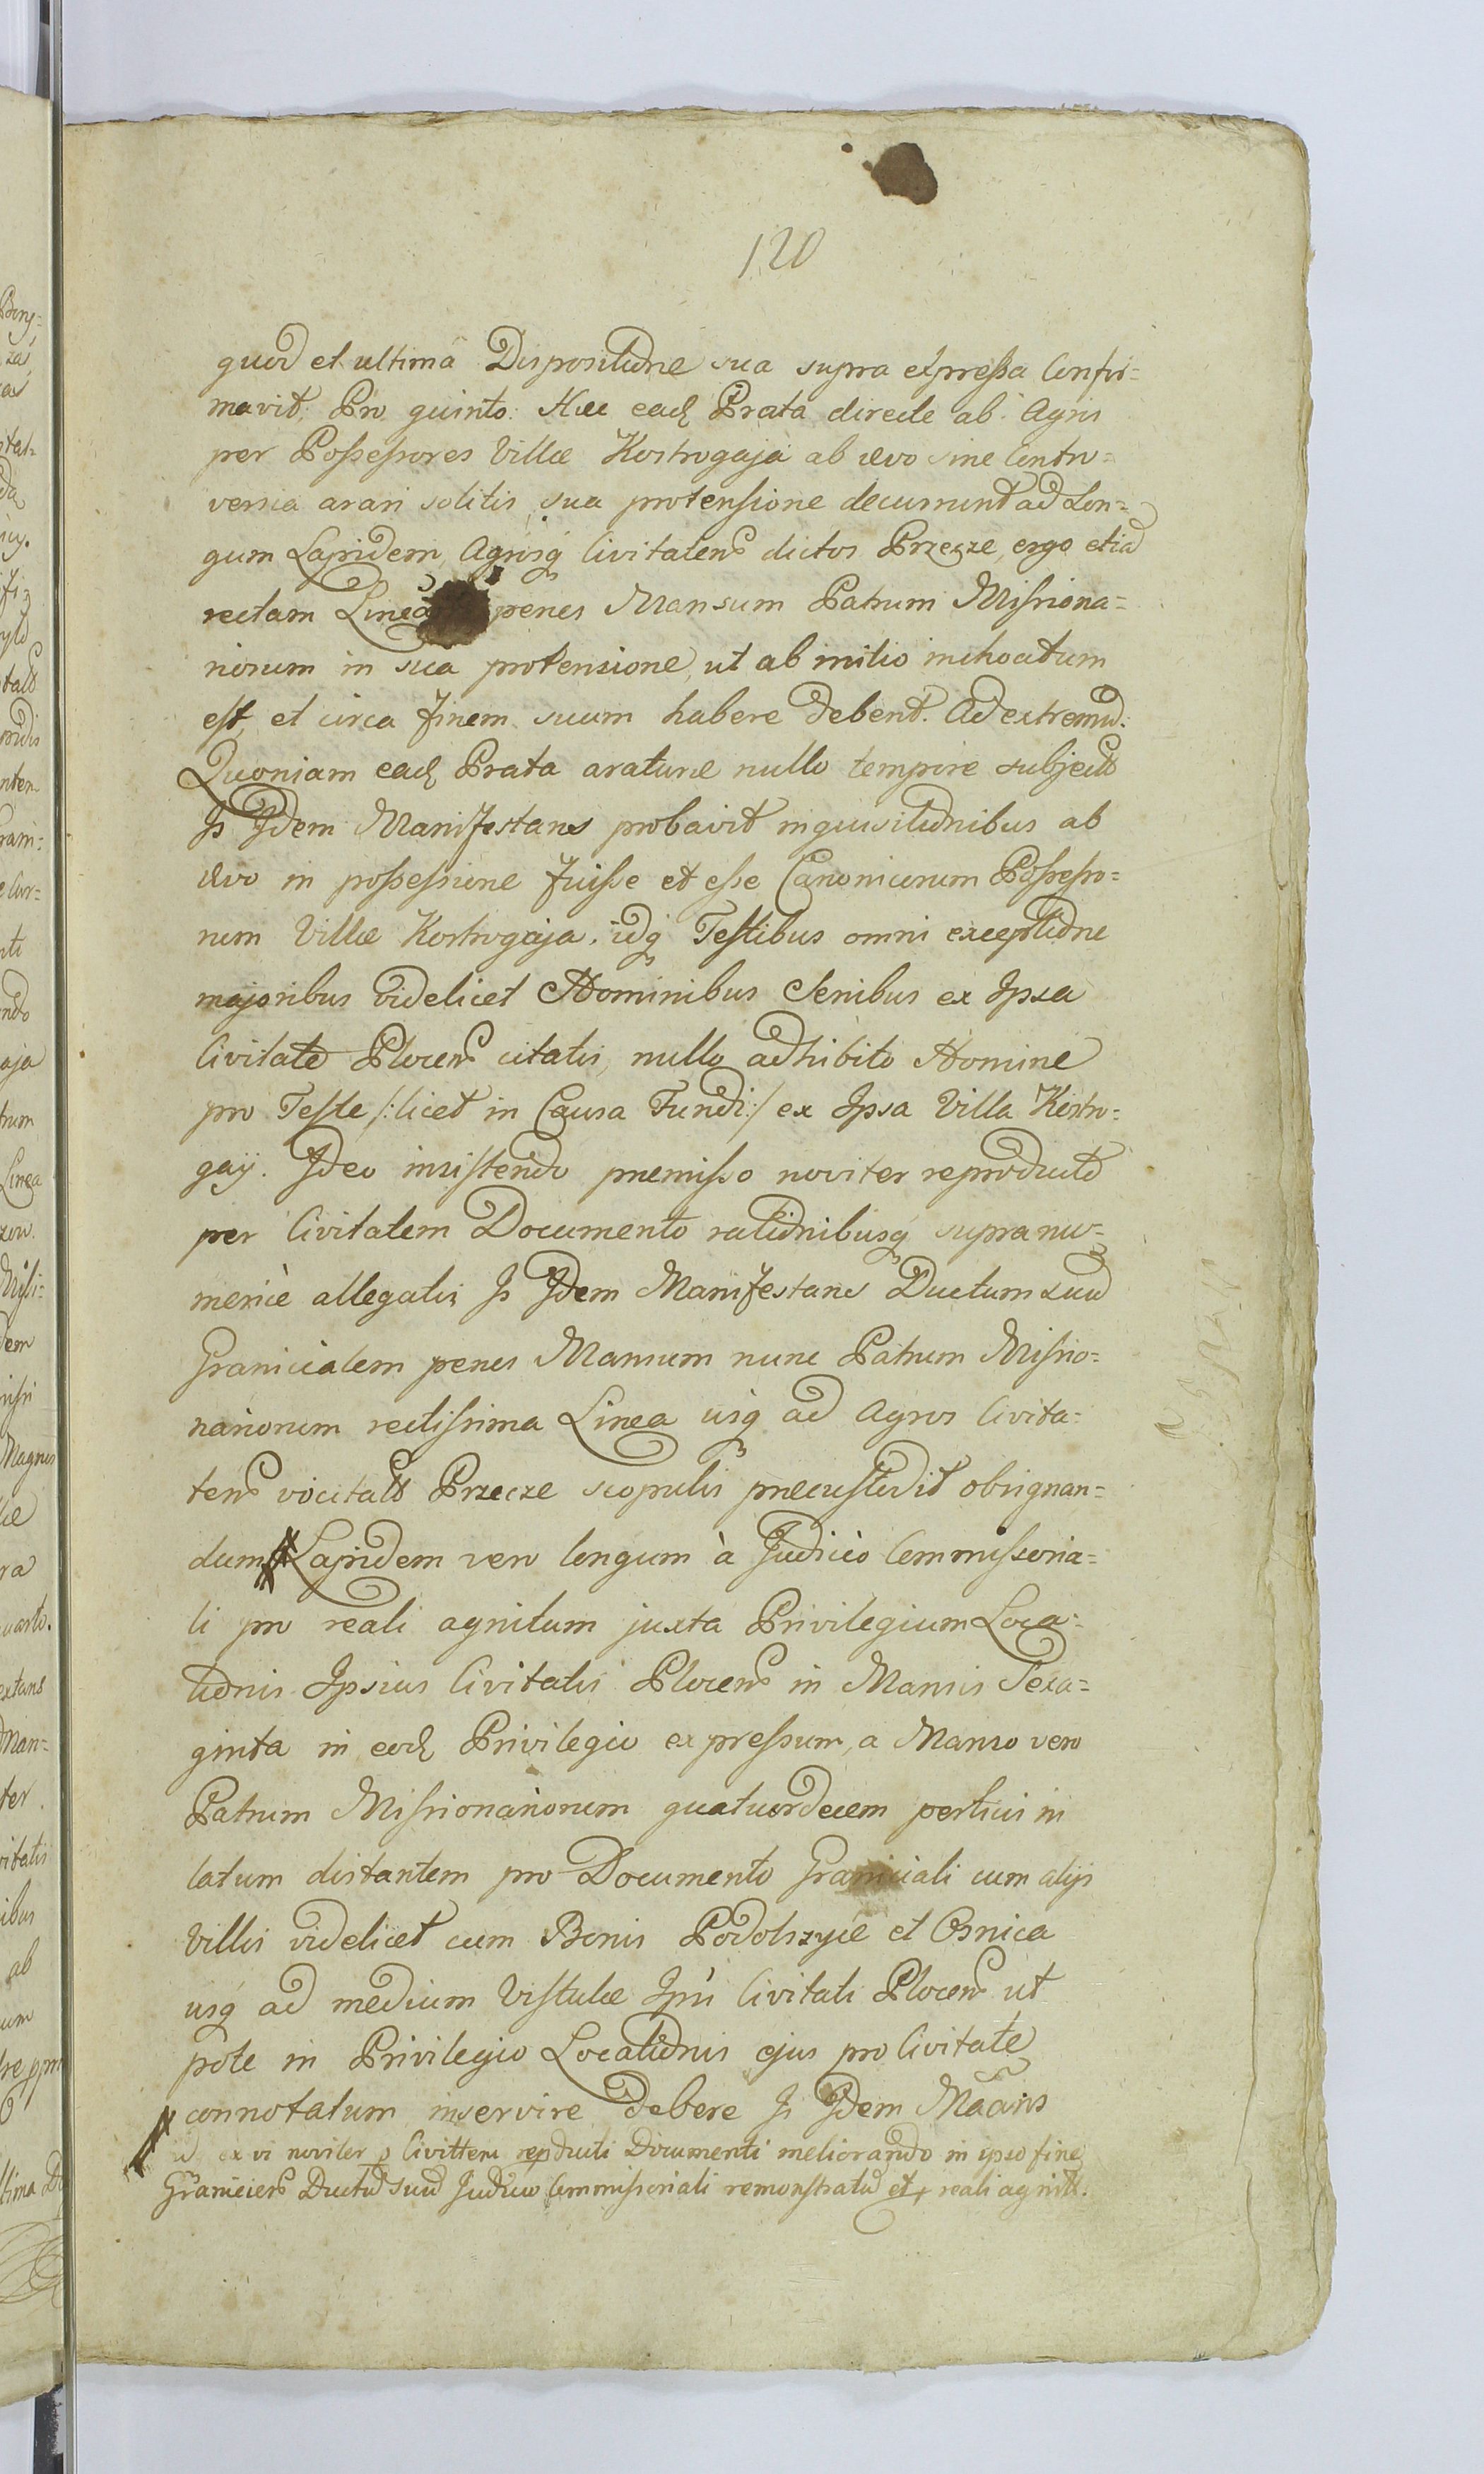 120
quod et ultimâ Dispositione sua supra expressa Confir=
mavit. Pro quinto: Hæc ead Prata directe ab Agris
per Possessores Villæ Kostrogaja ab ævo sine Contro=
versia arari solitis sua protensione decurrunt ad Lon=
gum Lapidem, Agrosq Civitatens dictos Przecze, ergo etia
rectam Linea penes Mansum Patrum Missiona=
riorum in sua protensione, ut ab initio inchoatum
est, et circa finem suum habere debent. Ad extremu:
Quoniam ead Prata araturæ nullo tempore subjecta
Is Idem Manifestans probavit inquisitionibus ab
ævo in possessione fuisse et esse Canonicorum Possesso=
rum Villæ Kostrogaja, idq Testibus omni exceptione
majoribus videlicet Hominibus Senibus ex Ipsa
Civitate Plocens citatis, nullo adhibito Homine
pro Teste /:licet in Causa Fundi:/ ex Ipsa Villa Kostro=
gaij. Ideo insistendo præmisso noviter reproducto
per Civitatem Documento rationibusq supra nu=
mericè allegatis Is Idem Manifestans Ductum suu
Granicialem penes Mansum nunc Patrum Missio=
nariorum rectissima Linea usq ad Agros Civita=
tens vocitatos Przecze scopulis præcustodit obsignan=
dum Lapidem vero longum à Judicio Commissoria=
li pro reali agnitum juxta Privilegium Loca=
tionis Ipsius Civitatis Plocens in Mansis Sexa=
ginta in eod Privilegio expressum, a Manso vero
Patrum Missionariorum quatuordecem perticis in
latum distantem pro Documento Graniciali cum alijs
Villis videlicet cum Bonis Podolszyce et Osnica
usq ad medium Vistulæ Ipsi Civitati Plocens ut
pote in Privilegio Locationis ejus pro Civitate
connotatum inservire debere Is Idem Maans
ex vi noviter p Civittem repducti Documenti meliorando in ipso fine
Graniciens Ductu suu Judicio Commissoriali remonstratu et p reali agnit.